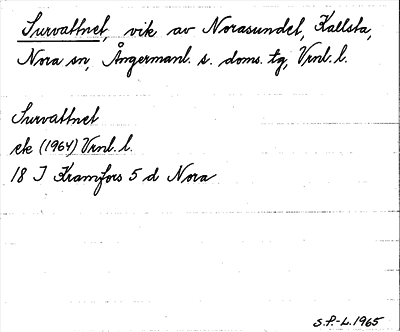 Survattnet, vik av Norasundet, Kallsta,
Nora sn, Ångermanl. s. doms. tg, Vrnl. l.
Survattnet
ek (1964) Vrnl. l.
18 I Kramfors 5 d Nora
S.P.-L. 1965